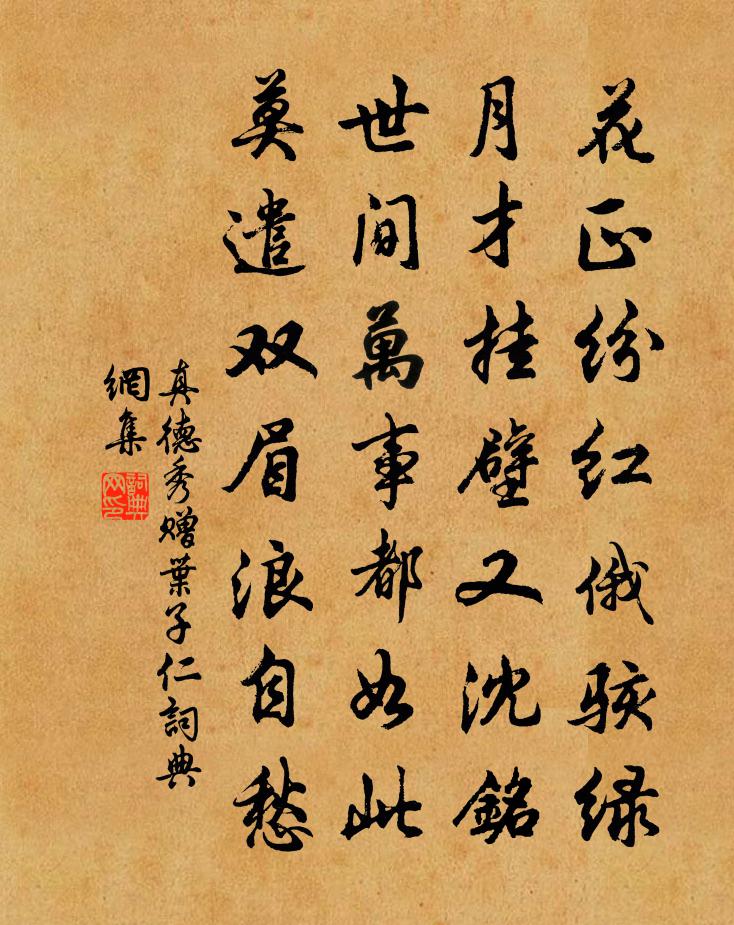 花正纷红俄骇绿
月才挂壁又沈銘
世间萬事都如此
莫遣双眉浪自愁
真德秀赠葉子仁詞典
網集
詞典
网印